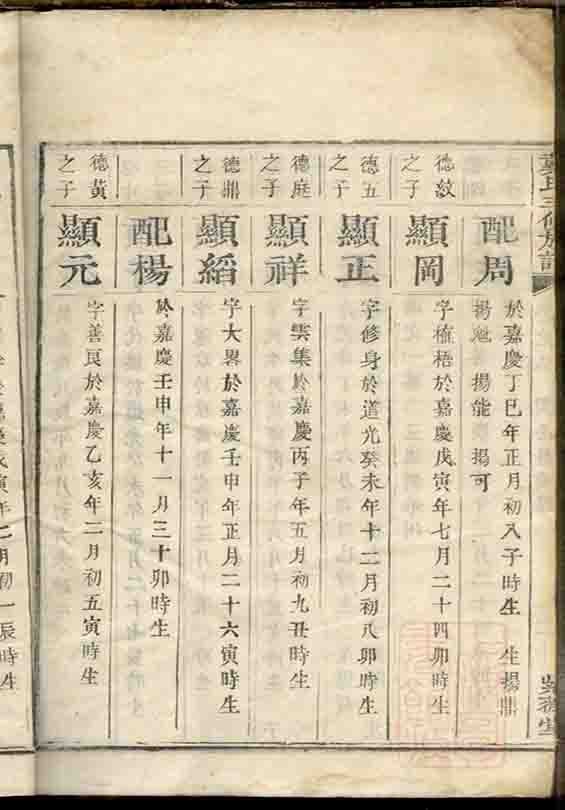 氏三修族譜
配周
於嘉慶丁巳年正月初八子時生 生揚鼎
揚魁 揚能 揚可
德紋之子
顯岡
字梧於嘉慶戊寅年七月二十四卯時生
德五之子
顯正
字修身於道光癸未年十二月初八卯時生
德庭之子
顯祥
字雲集於嘉慶丙子年五月初九丑時生
德鼎之子
顯縚
字大畧於嘉慶壬申年正月二十六寅時生
配楊
於嘉慶壬申年十一月三十卯時生
德黃之子
顯元
字善良於嘉慶乙亥年二月初五寅時生
寅年七月初一辰時生